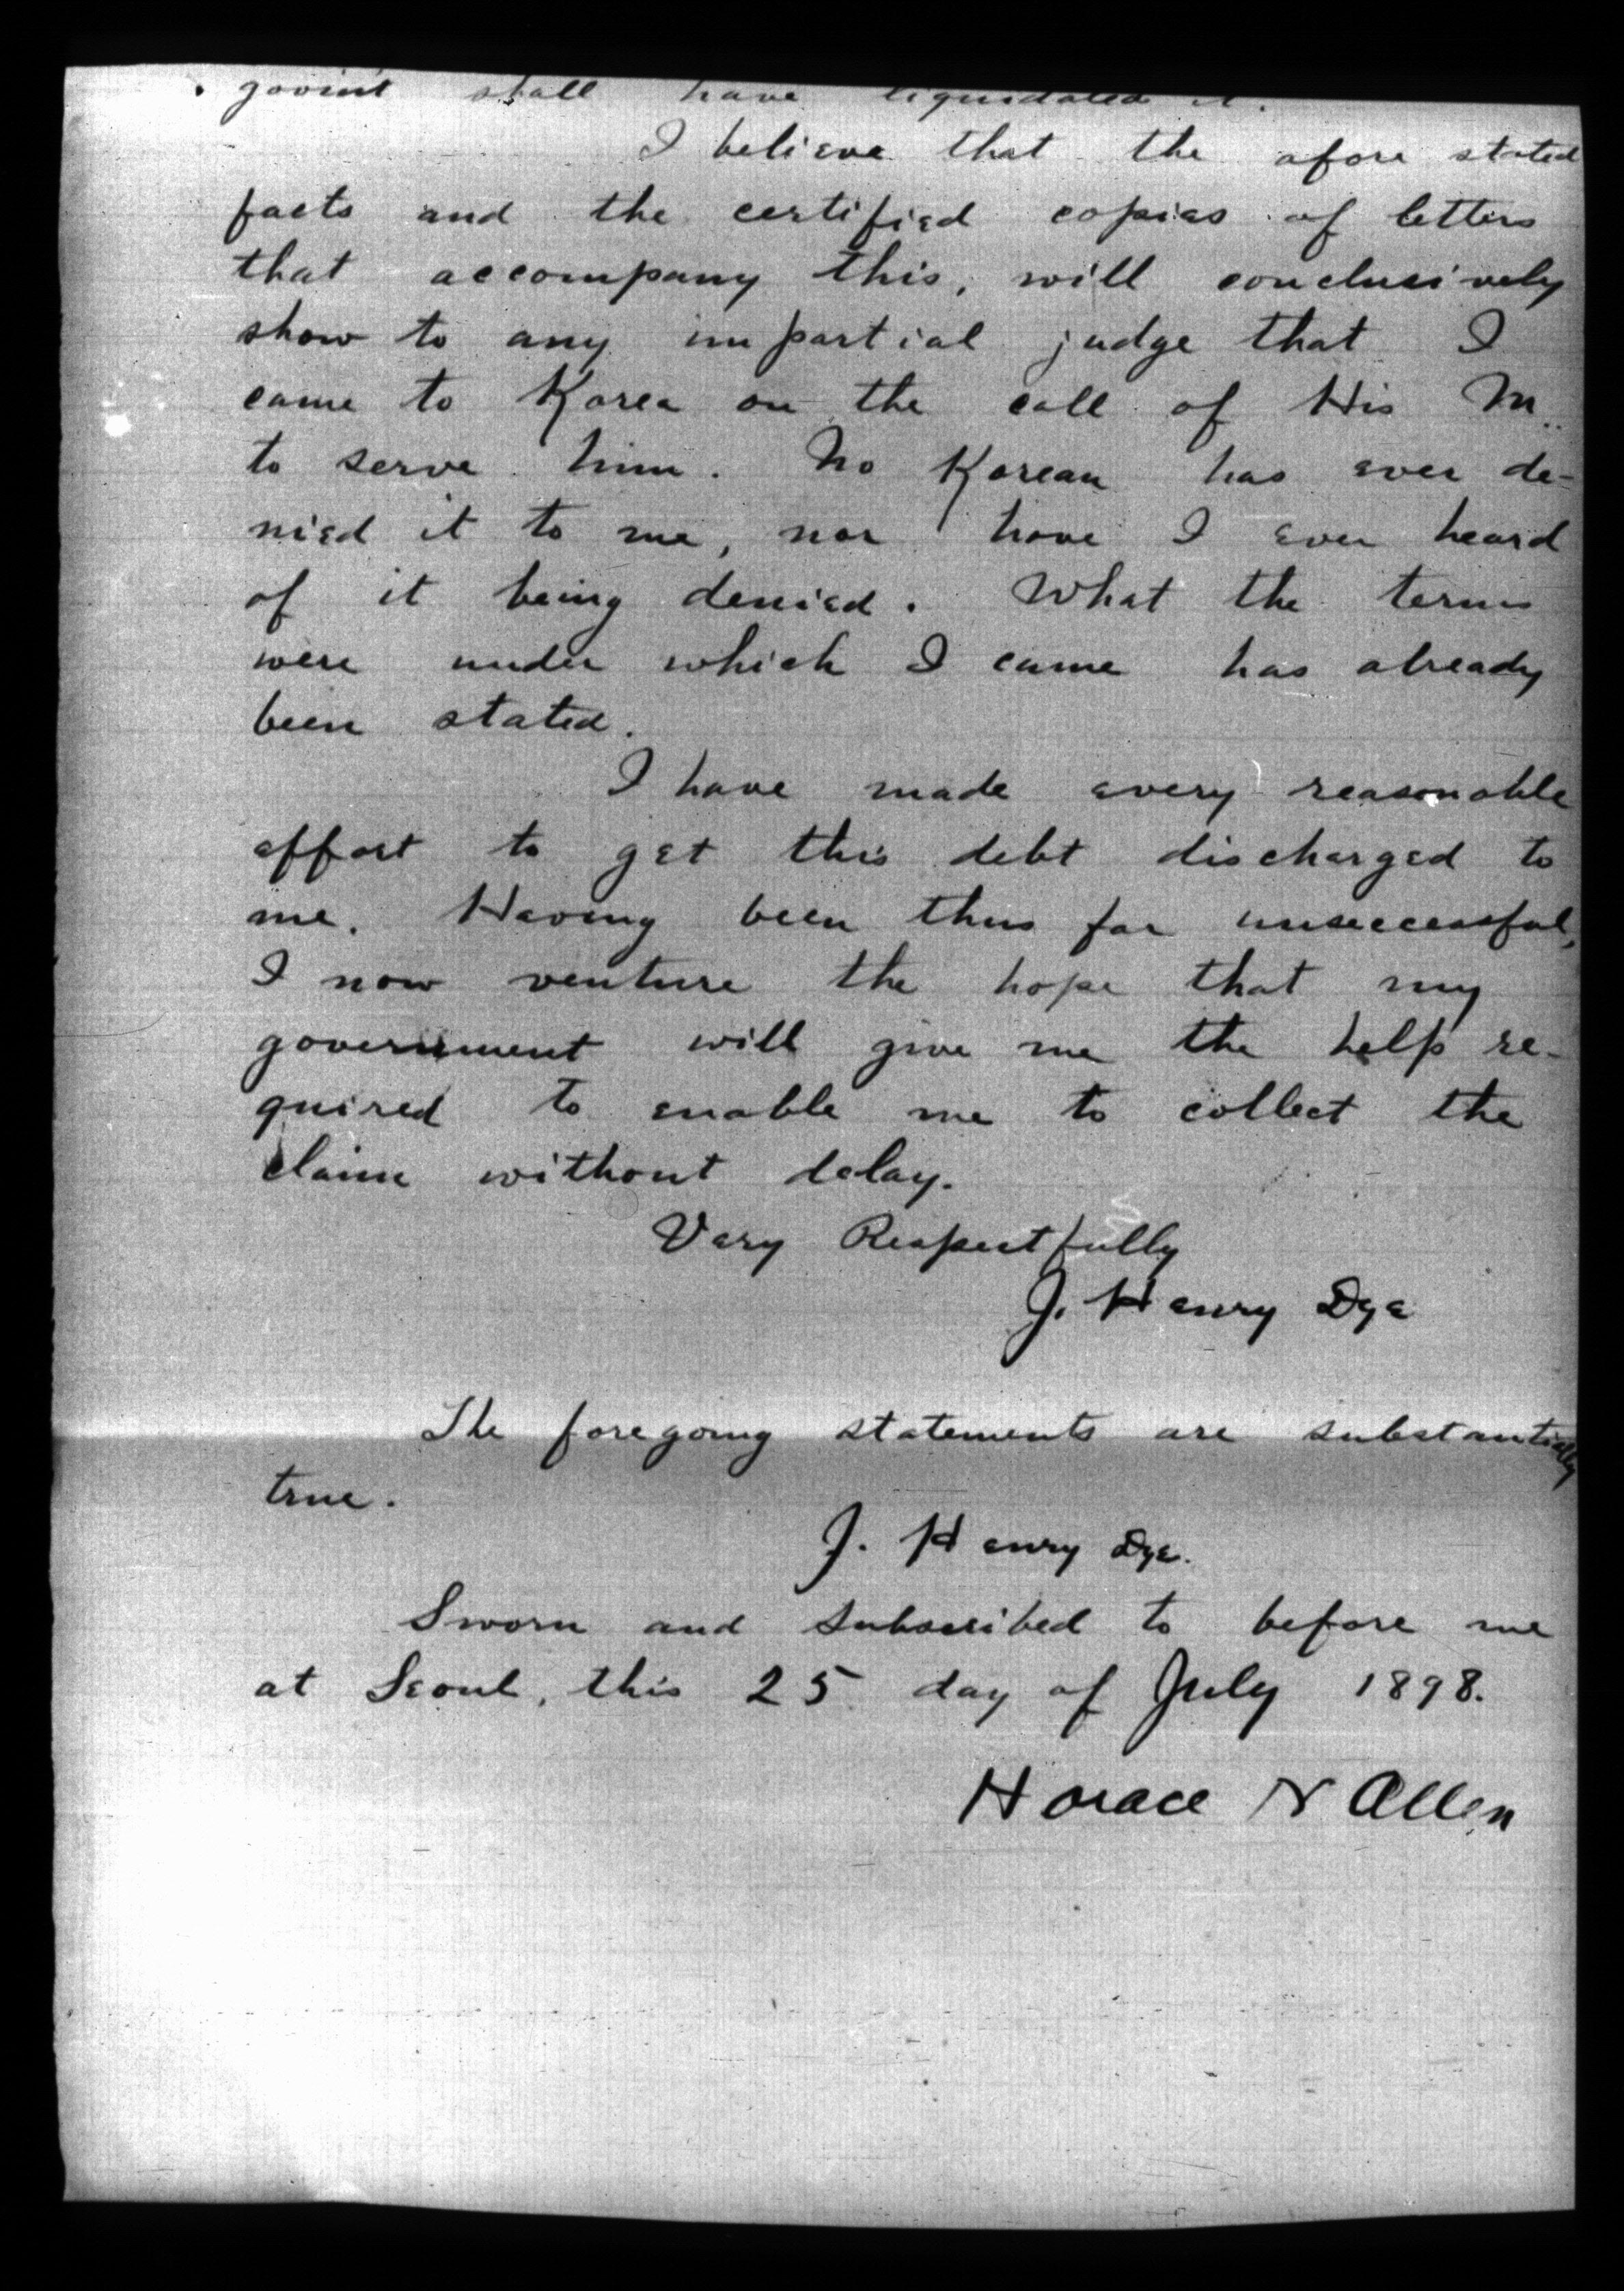 gov'mt shall have liquidated it.
I believe that the afore stated
facts and the certified copies of letters
that accompany this, will conclusively
show to any impartial judge that I
came to Korea on the call of His M..
to serve him. No Korean has ever de-
nied it to me, nor have I ever heard
of it being denied. What the terms
were under which I came has already
been stated.
I have made every reasonable
effort to get this debt discharged to
me. Having been thus far unseccessful,
I now venture the hope that my
government will give me the help re-
quired to enable me to collect the
claim without delay.
Very Respectfully
J. Henry Dye
The foregoing statements are substantially
true.
J. Henry Dye.
Sworn and subscribed to before me
at Seoul, this 25 day of July 1898.
Horace N Allen